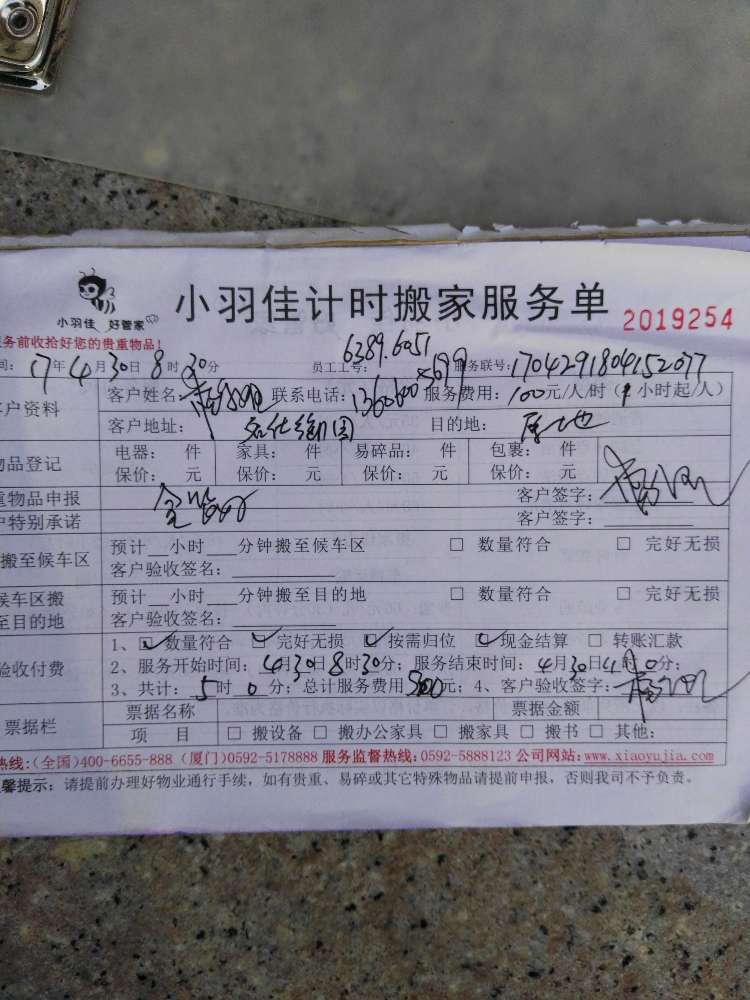 小羽佳 好管家
小羽佳计时搬家服务单
2019254
务前收拾好您的贵重物品!
6389.6051
间: 17年4月30日8时30分 员工工号: 服务联号: 1704291804152077
户资料 客户姓名: 联系电话: 服务费用: 100元/人/时( 小时起/人)
客户地址: 目的地: 原地
物品登记 电器: 件 家具: 件 易碎品: 件 包裹: 件
保价: 元 保价: 元 保价: 元 保价: 元
重物品申报 客户签字:
户特别承诺 客户签字:
搬至候车区 预计__小时___分钟搬至候车区 □ 数量符合 □ 完好无损
客户验收签名:
候车区搬至目的地 预计__小时___分钟搬至目的地 □ 数量符合 □ 完好无损
客户验收签名:
验收付费 1、☑数量符合 ☑完好无损 ☑按需归位 ☑现金结算 □ 转账汇款
2、服务开始时间: 4月30日8时30分; 服务结束时间: 4月30日 时 0分;
3、共计: 5时 0分; 总计服务费用 元; 4、客户验收签字:
票据栏 票据名称 票据金额
项 目 □ 搬设备 □ 搬办公家具 □ 搬家具 □ 搬书 □ 其他:
热线:(全国)400-6655-888 (厦门)0592-5178888 服务监督热线:0592-5888123 公司网站:www.xiaoyujia.com
馨提示: 请提前办理好物业通行手续，如有贵重、易碎或其它特殊物品请提前申报，否则我司不予负责。